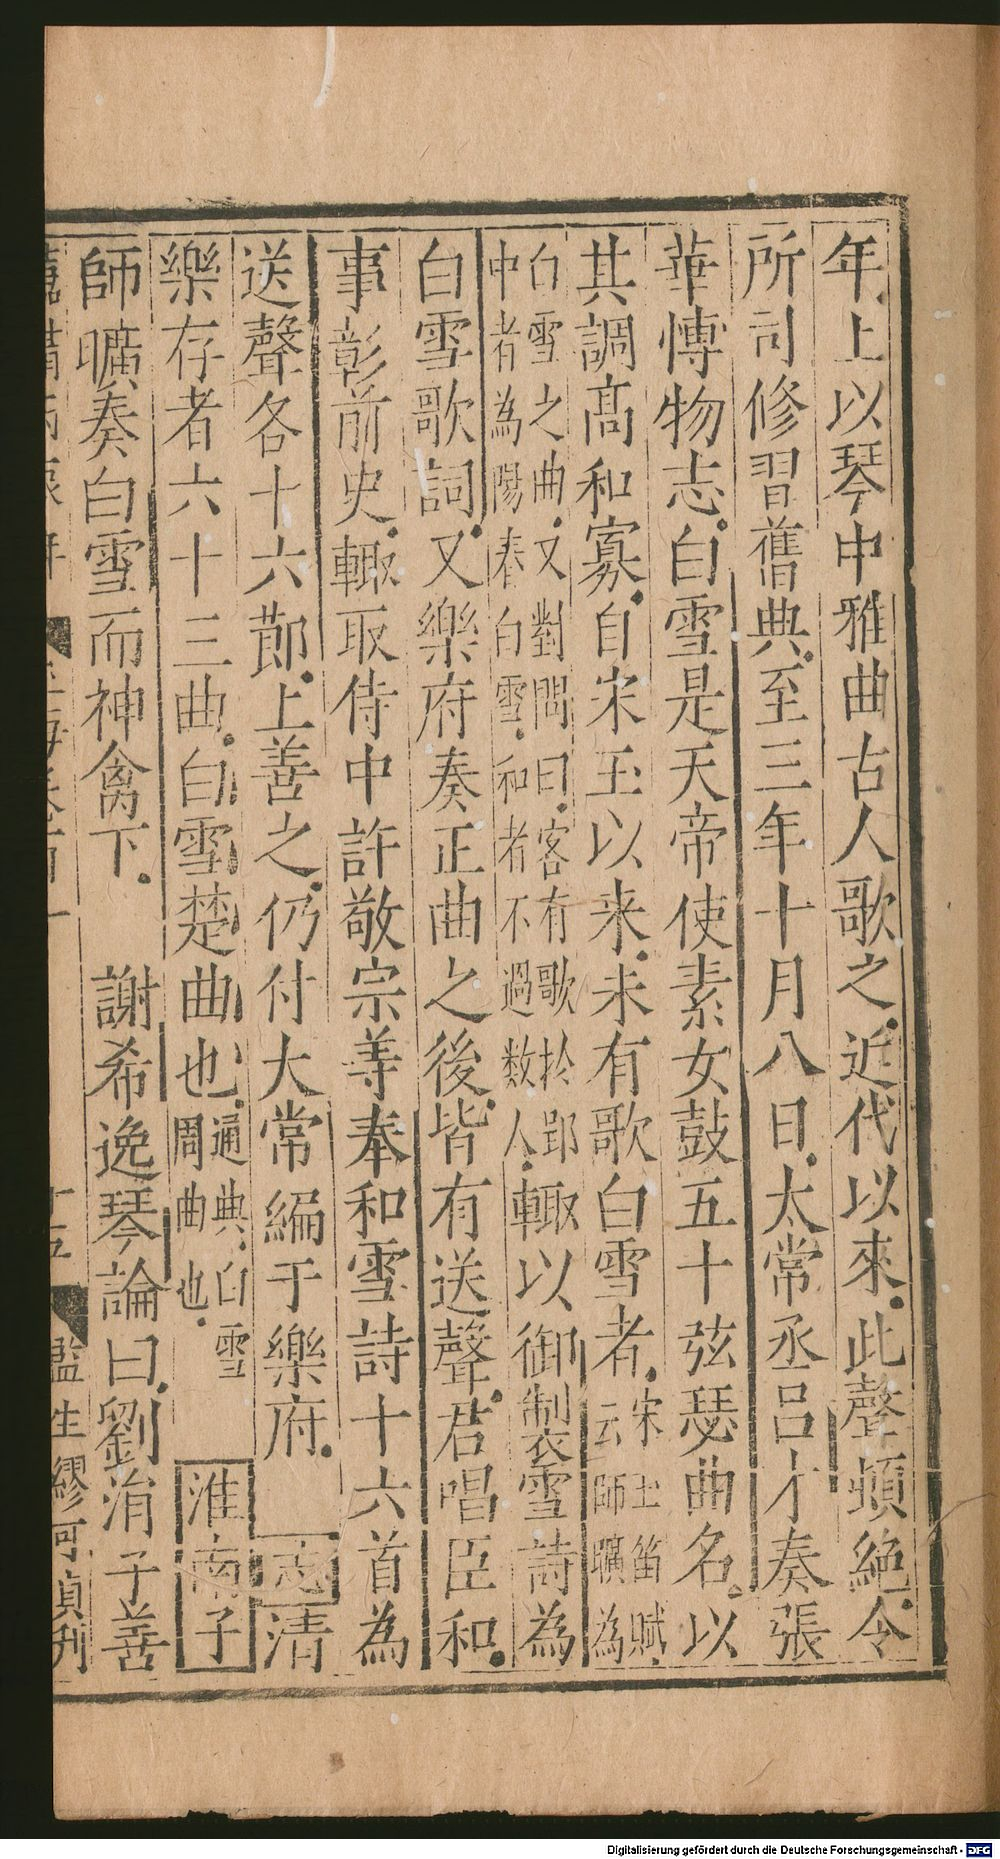 年上以琴中雅曲古人歌之近代以來此聲頓絕令
所司修習舊典至三年十月八日太常丞呂才奏張
華愽物志白雪是天帝使素女鼓五十弦瑟曲名以
其調髙和寡自宋玉以来未有歌白雪者宋玉笛賦云師曠為
白雪之曲又對問曰客有歌於郢
中者為陽春白雪和者不過数人輙以御製雪詩為
白雪歌詞又樂府奏正曲之後皆有送聲君唱臣和
事彰前史輙取侍中許敬宗等奉和雪詩十六首為
送聲各十六節上善之仍付大常編于樂府 志清
樂存者六十三曲白雪楚曲也通典白雪周曲也 淮南子
師曠奏白雪而神禽下 謝希逸琴論曰劉涓子善
十五
監生繆可貞刋
Digitalisierung gefördert durch die Deutsche Forschungsgemeinschaft - DFG